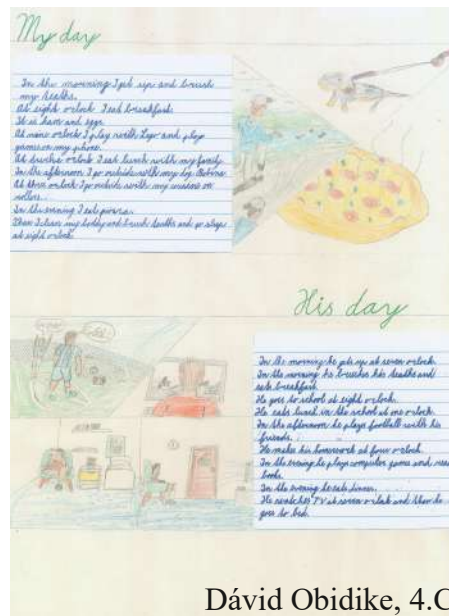 My day
In the morning I get up and brush
my teaths.
At eight o'clock I eat breakfast.
It is ham and eggs.
At nine o'clock I play with Lego and play
games on my phone.
At twelve o'clock I eat lunch with my family.
In the afternoon I go outside with my dog
At three o'clock I go outside with my cousins on
rollers.
In the evening I eat pizza.
Then I clean my body and brush teaths and go sleep
at eight o'clock.
His day
In the morning he gets up at seven o'clock.
In the morning he brushes his teaths and
eats breakfast.
He goes to school at eight o'clock.
He eats lunch in the school at one o'clock.
In the afternoon he plays football with his
friends.
He makes his homework at four o'clock.
In the evening he plays computer games and
books.
In the evening he eats dinner.
He watches TV at seven o'clock and then he
goes to bed.
Dávid Obidike, 4.C